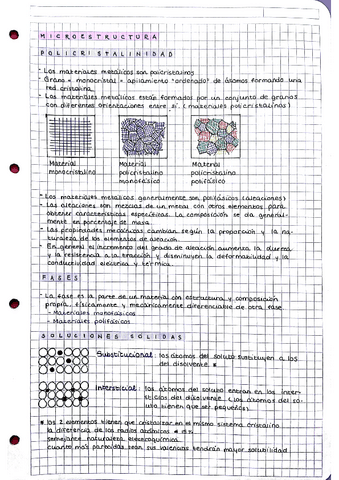 MICROESTRUCTURA
POLICRISTALINIDAD
- Los materiales metálicos son policristalinos
- Grano = monocristal = apilamiento "ordenado" de átomos formando una
red cristalina
- Los materiales metálicos están formados por un conjunto de granos
con diferentes orientaciones entre sí. (materiales policristalinos)
Material Material Material
monocristalino policristalino policristalino
monofásico polifásico
- Los materiales metálicos generalmente son polifásicos (aleaciones)
- Las aleaciones son mezclas de un metal con otros elementos para
obtener características específicas. La composición se da general-
mente en porcentaje de masa.
- Las propiedades mecánicas cambian según la proporción y la na-
turaleza de los elementos de aleación.
- En general el incremento del grado de aleación aumenta la dureza
y la resistencia a la tracción y disminuyen la deformabilidad y la
conductividad eléctrica y térmica.
FASES
- La fase es la parte de un material con estructura y composición
propia, física y mecánicamente diferenciable de otra fase
- Materiales monofásicos
- Materiales polifásicos
SOLUCIONES SÓLIDAS
Substitucional: los átomos del soluto sustituyen a los
del disolvente *
Intersticial: los átomos del soluto entran en los inter-
sticios del disolvente. (los átomos del so-
luto tienen que ser pequeños).
* los 2 elementos tienen que cristalizar en el mismo sistema cristalino
la diferencia de los radios atómicos
semejante naturaleza electroquímica
cuanto más parecidas sean sus valencias tendrán mayor solubilidad